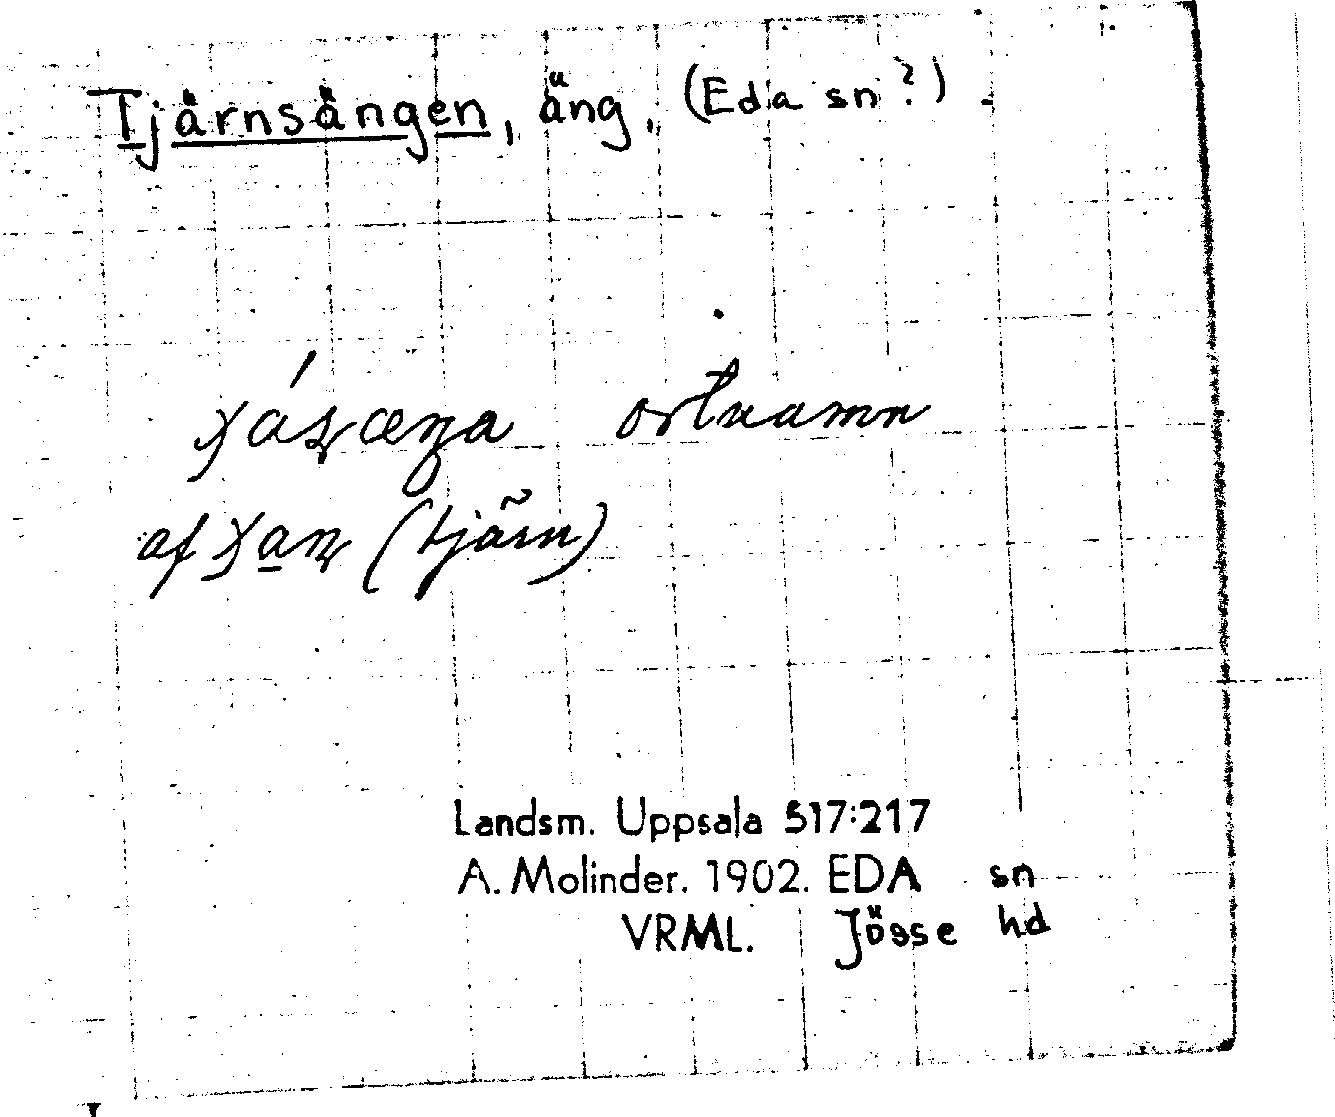 Tjärnsängen, äng, (Eda sn?).
ortnamn
af (tjärn)
Landsm. Uppsala 517:217
A. Molinder. 1902. EDA sn
VRML. Jösse hd